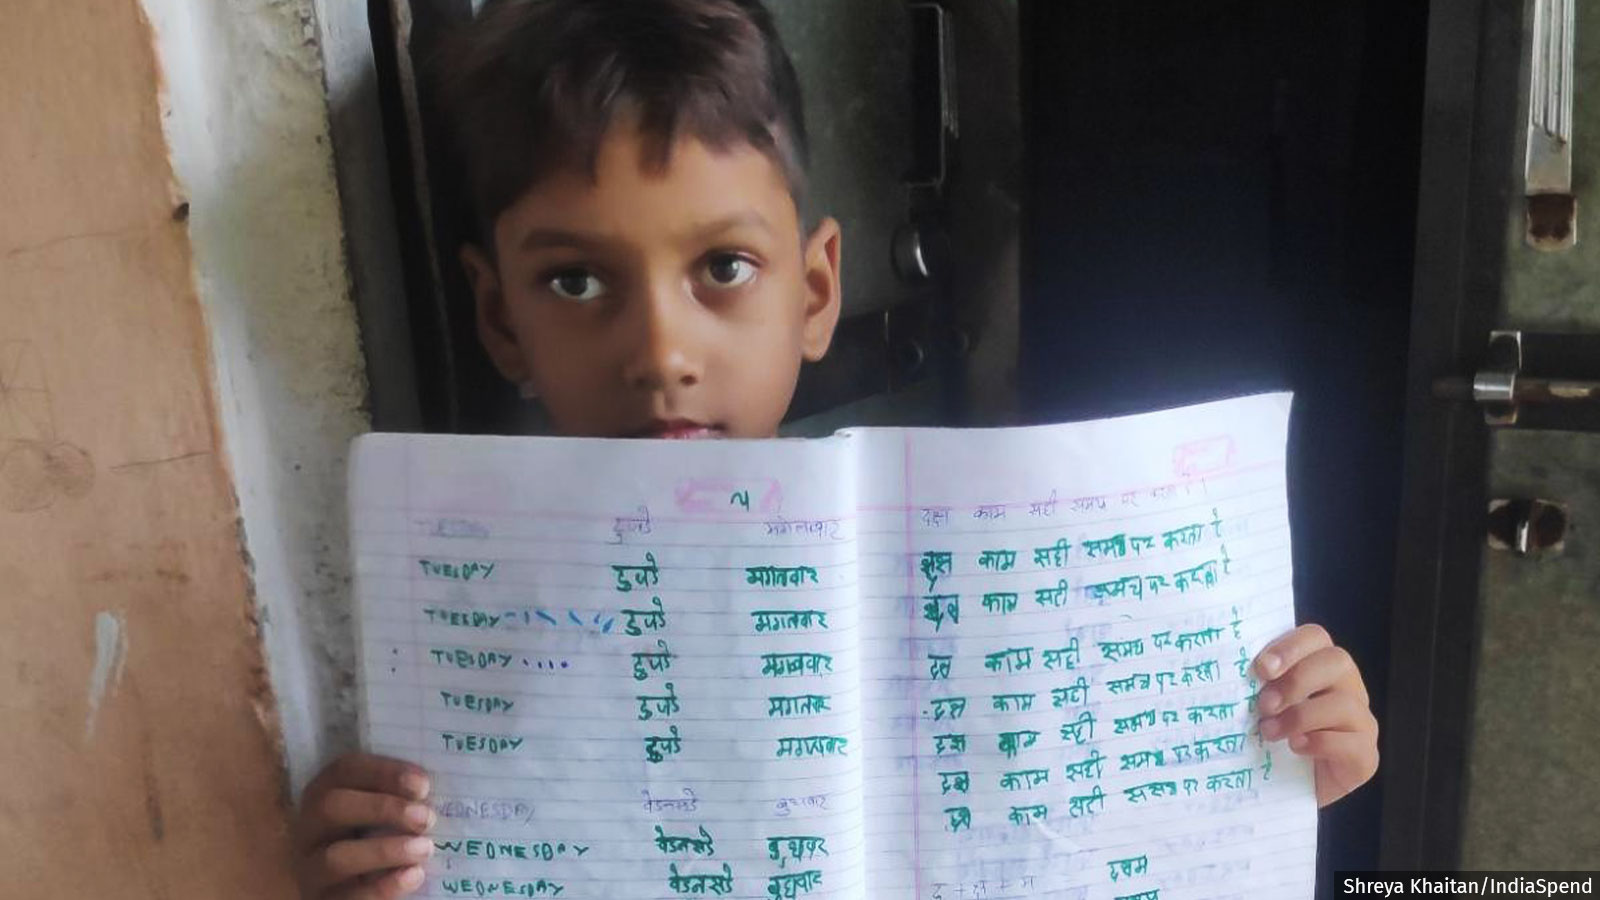 डुजडे मंगलवार
TUESDAY डुजडे मगलवार
TUESDAY डुजडे मगलवार
TUESDAY डुजडे मगलवार
TUESDAY डुजडे मगलवार
TUESDAY डुजडे मगलवार
WEDNESDAY वेडनसडे बुधवार
WEDNESDAY वेडनसडे बुधवार
WEDNESDAY वेडनसडे बुधवार
काम सही समय पर करता है।
काम सही समय पर करता है
काम सही समय पर करता है
काम सही समय पर करता है
काम सही समय पर करता है
काम सही समय पर करता है
काम सही समय पर करता
काम सही समय पर करता है
Shreya Khaitan/IndiaSpend